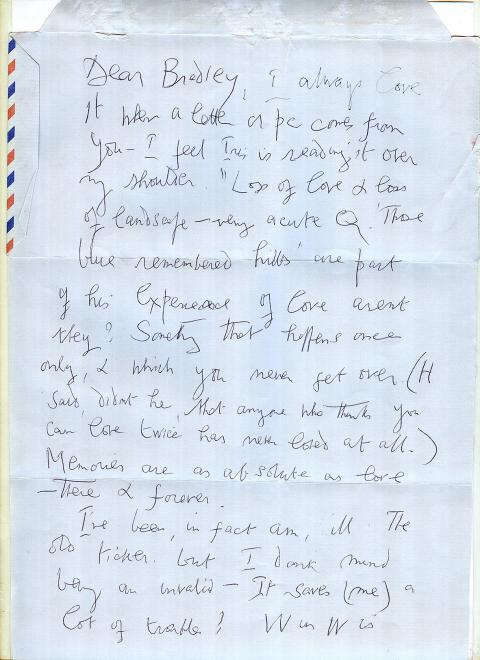 Dear Bradley, I always love
it when a letter or pc comes from
you – I feel Iris is reading it over
my shoulder. "Loss of love & loss
of landscape – very acute Q. 'Those
blue remembered hills' are part
of his experience of love arent
they? Something that happens once
only, & which you never get over. (H
said, didnt he, that anyone who thinks you
can love twice has never loved at all.)
Memories are as absolute as love
– there & forever.
I've been, in fact am, ill. The
old ticker. but I dont mind
being an invalid – It saves (me) a
lot of trouble! W in W is